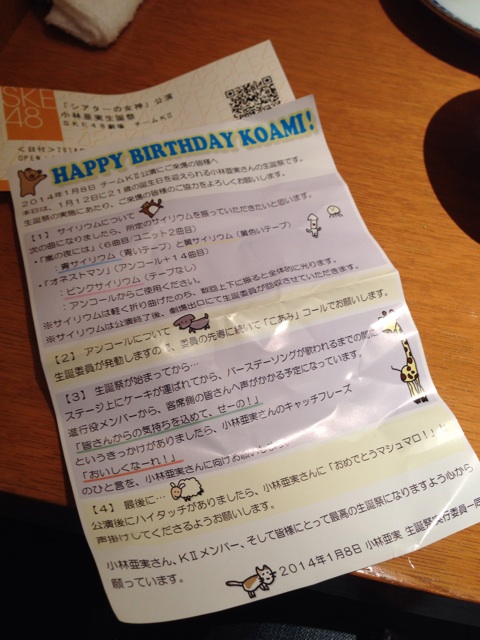 SKE
48
「シアターの女神」公演
小林亜実生誕祭
SKE48劇場 チームKⅡ
<日付>
OPEN
HAPPY BIRTHDAY KOAMI!
2014年1月8日 チームKⅡ公演にご来場の皆様へ
本日は、1月12日に21歳の誕生日を迎えられる小林亜実さんの生誕祭です。
生誕祭の実施にあたり、ご来場の皆様のご協力をよろしくお願いします。
【1】 サイリウムについて
次の曲になりましたら、所定のサイリウムを振っていただきたいと思います。
・「嵐の夜には」(6曲目/ユニット2曲目)
:青サイリウム(青いテープ)と黄サイリウム(黄色いテープ)
・「オネストマン」(アンコール+14曲目)
:ピンクサイリウム(テープなし)
:アンコールからご使用ください。
※サイリウムは軽く折り曲げたのち、数回上下に振ると全体的に光ります。
※サイリウムは公演終了後、劇場出口にて生誕委員が回収させていただきます。
【2】 アンコールについて
生誕委員が発動しますの、委員の先導に続いて「こあみ」コールでお願いします。
【3】 生誕祭が始まってから…
ステージ上にケーキが運ばれてから、バースデーソングが歌われるまでの間に
進行役メンバーから、客席側の皆さんへ声がかかる予定になっています。
「皆さんからの気持ちを込めて、せーの！」
というきっかけがありましたら、小林亜実さんのキャッチフレーズ
「おいしくなーれ！」
のひと言を、小林亜実さんに向けお願いし
【4】 最後に…
公演後にハイタッチがありましたら、小林亜実さんに「おめでとうマシュマロ！」と
声掛けしてくださるようお願いします。
小林亜実さん、KⅡメンバー、そして皆様にとって最高の生誕祭になりますよう心から
願っています。
2014年1月8日 小林亜実 生誕祭実行委員一同